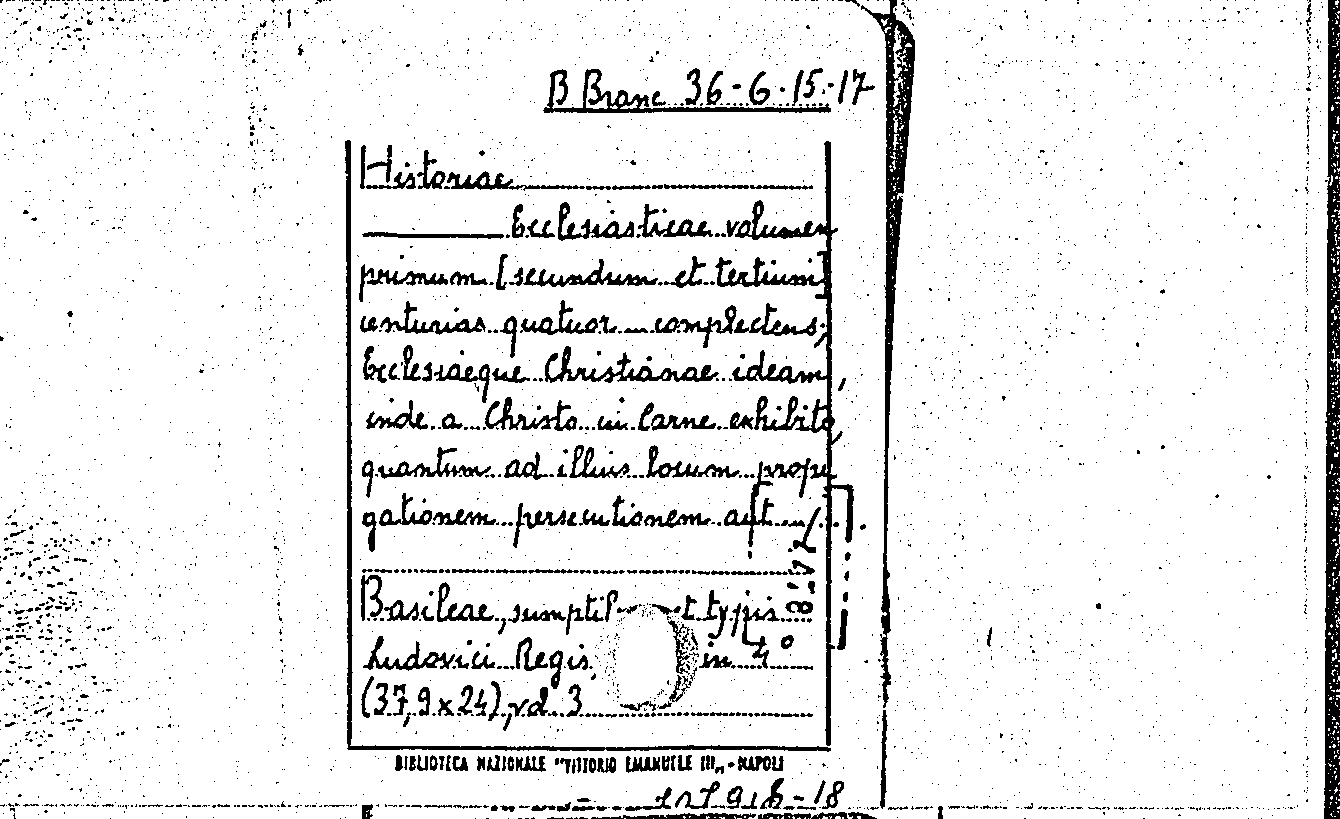 B Branc 36-6-15-17
Historiae
Ecclesiasticae volumen
primum [secundum et tertium]
centurias quatuor complectens,
Ecclesiaeque Christianae ideam,
inde a Christo in Carne exhibito,
quantum ad illius locum propa
gationem persecutionem aut...
Basileae, sumptib et typis
Ludovici Regis, in 4°
(37,9 x 24), vol. 3
BIBLIOTECA NAZIONALE "VITTORIO EMANUELE III" - NAPOLI